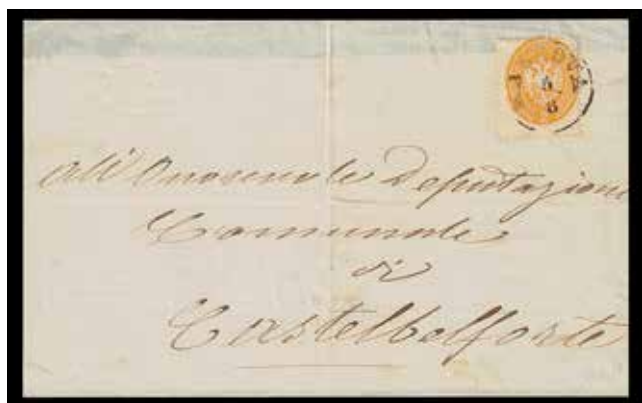 5
6
All' Onorevole Deputazione
Comunale
di
Castelbelforte